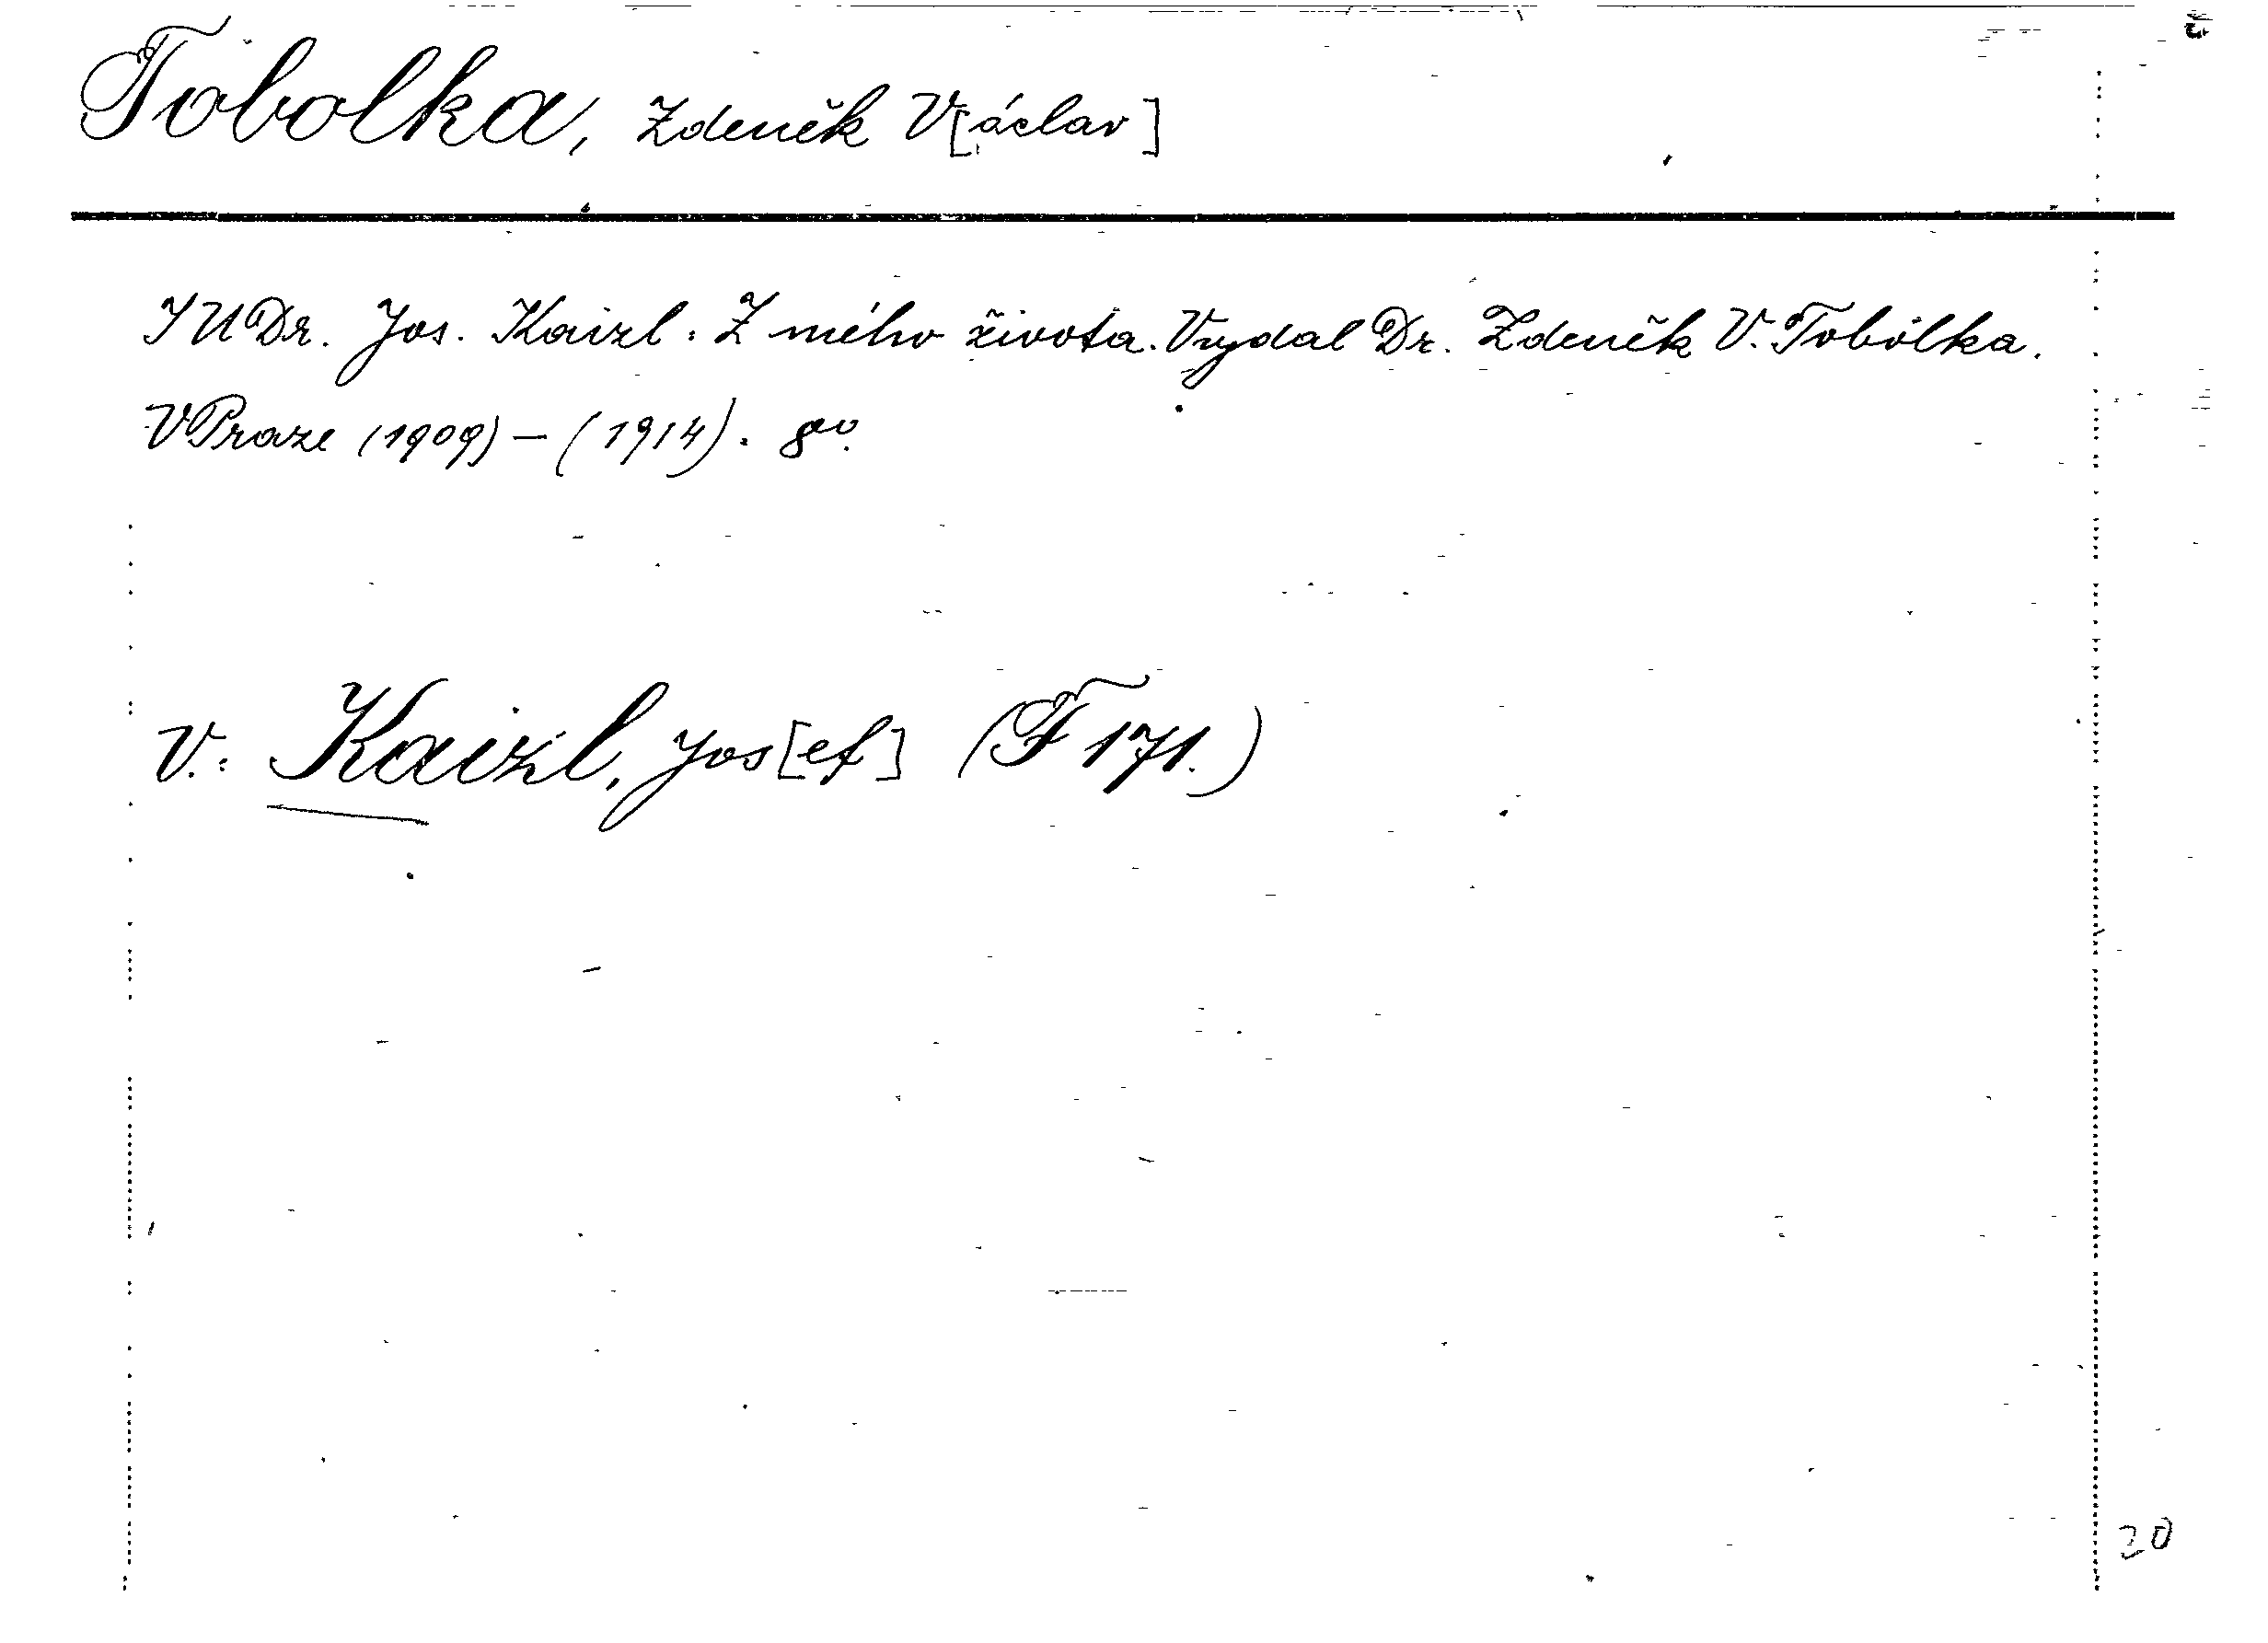 Tobolka, Zdeněk V[áclav]
JUDr. Jos. Kaizl: Z mého života. Vydal Dr. Zdeněk V. Tobolka.
V Praze (1909) – (1914). 8vo.
V.: Kaizl, Jos[ef] (F 171.)
20